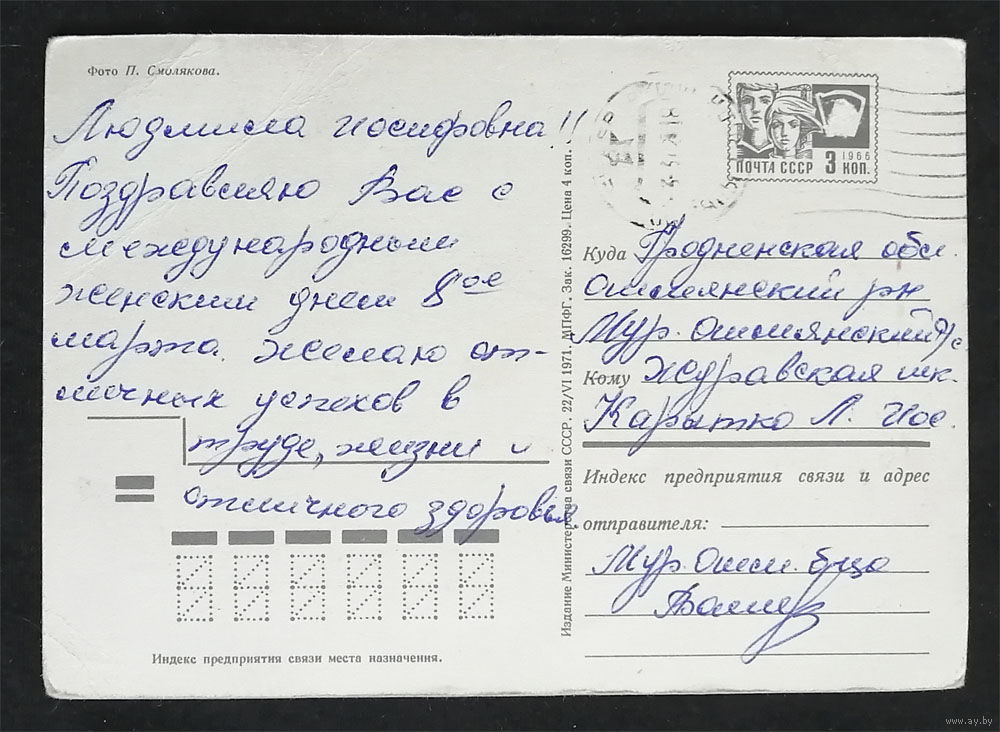 Фото П. Смолякова.
Людмила Иосифовна!!
Поздравляю Вас с
международным
женским днем 8ое
марта. Желаю от-
личных успехов в
труде, жизни и
отличного здоровья.
Индекс предприятия связи места назначения.
Издание Министерства связи СССР. 22/VI 1971. МПФГ. Зак. 16299. Цена 4 коп.
1966
ПОЧТА СССР 3 КОП.
Куда Гродненская обл.
Ошмянский рн
Мур. Ошмянский с/с
Кому Журавская шк.
Карытко Л. Иос.
Индекс предприятия связи и адрес
отправителя:
Мур. Ошм. б-ца
www.ay.by